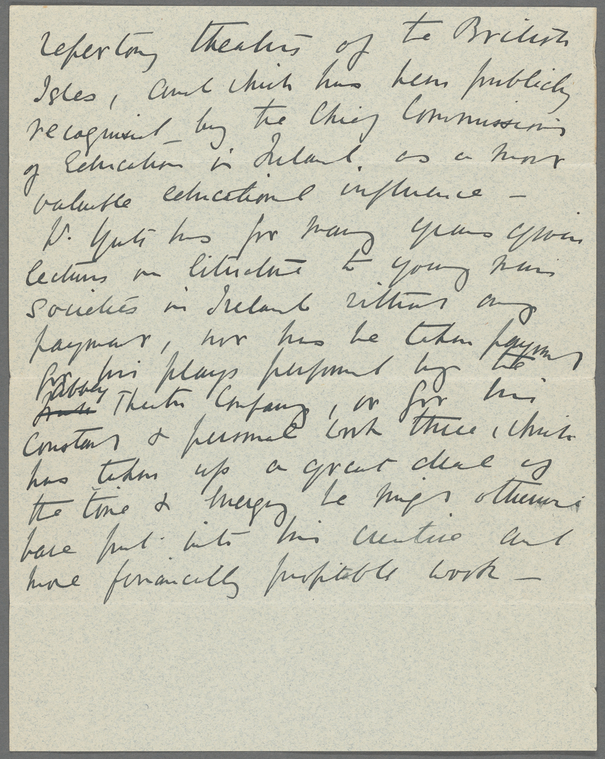 repertory theatres of the British
Isles, and which has been publicly
recognised by the Chief Commissioners
of Education in Ireland as a most
valuable educational influence —
Dr. Yeats has for many years given
lectures on literature to young mens
societies in Ireland without any
payment, nor has he taken payment
for his plays performed by the
Abbey
Theatre Company, or for his
constant & personal work there, which
has taken up a great deal of
the time & energy he might otherwise
have put into his creative and
more financially profitable work —